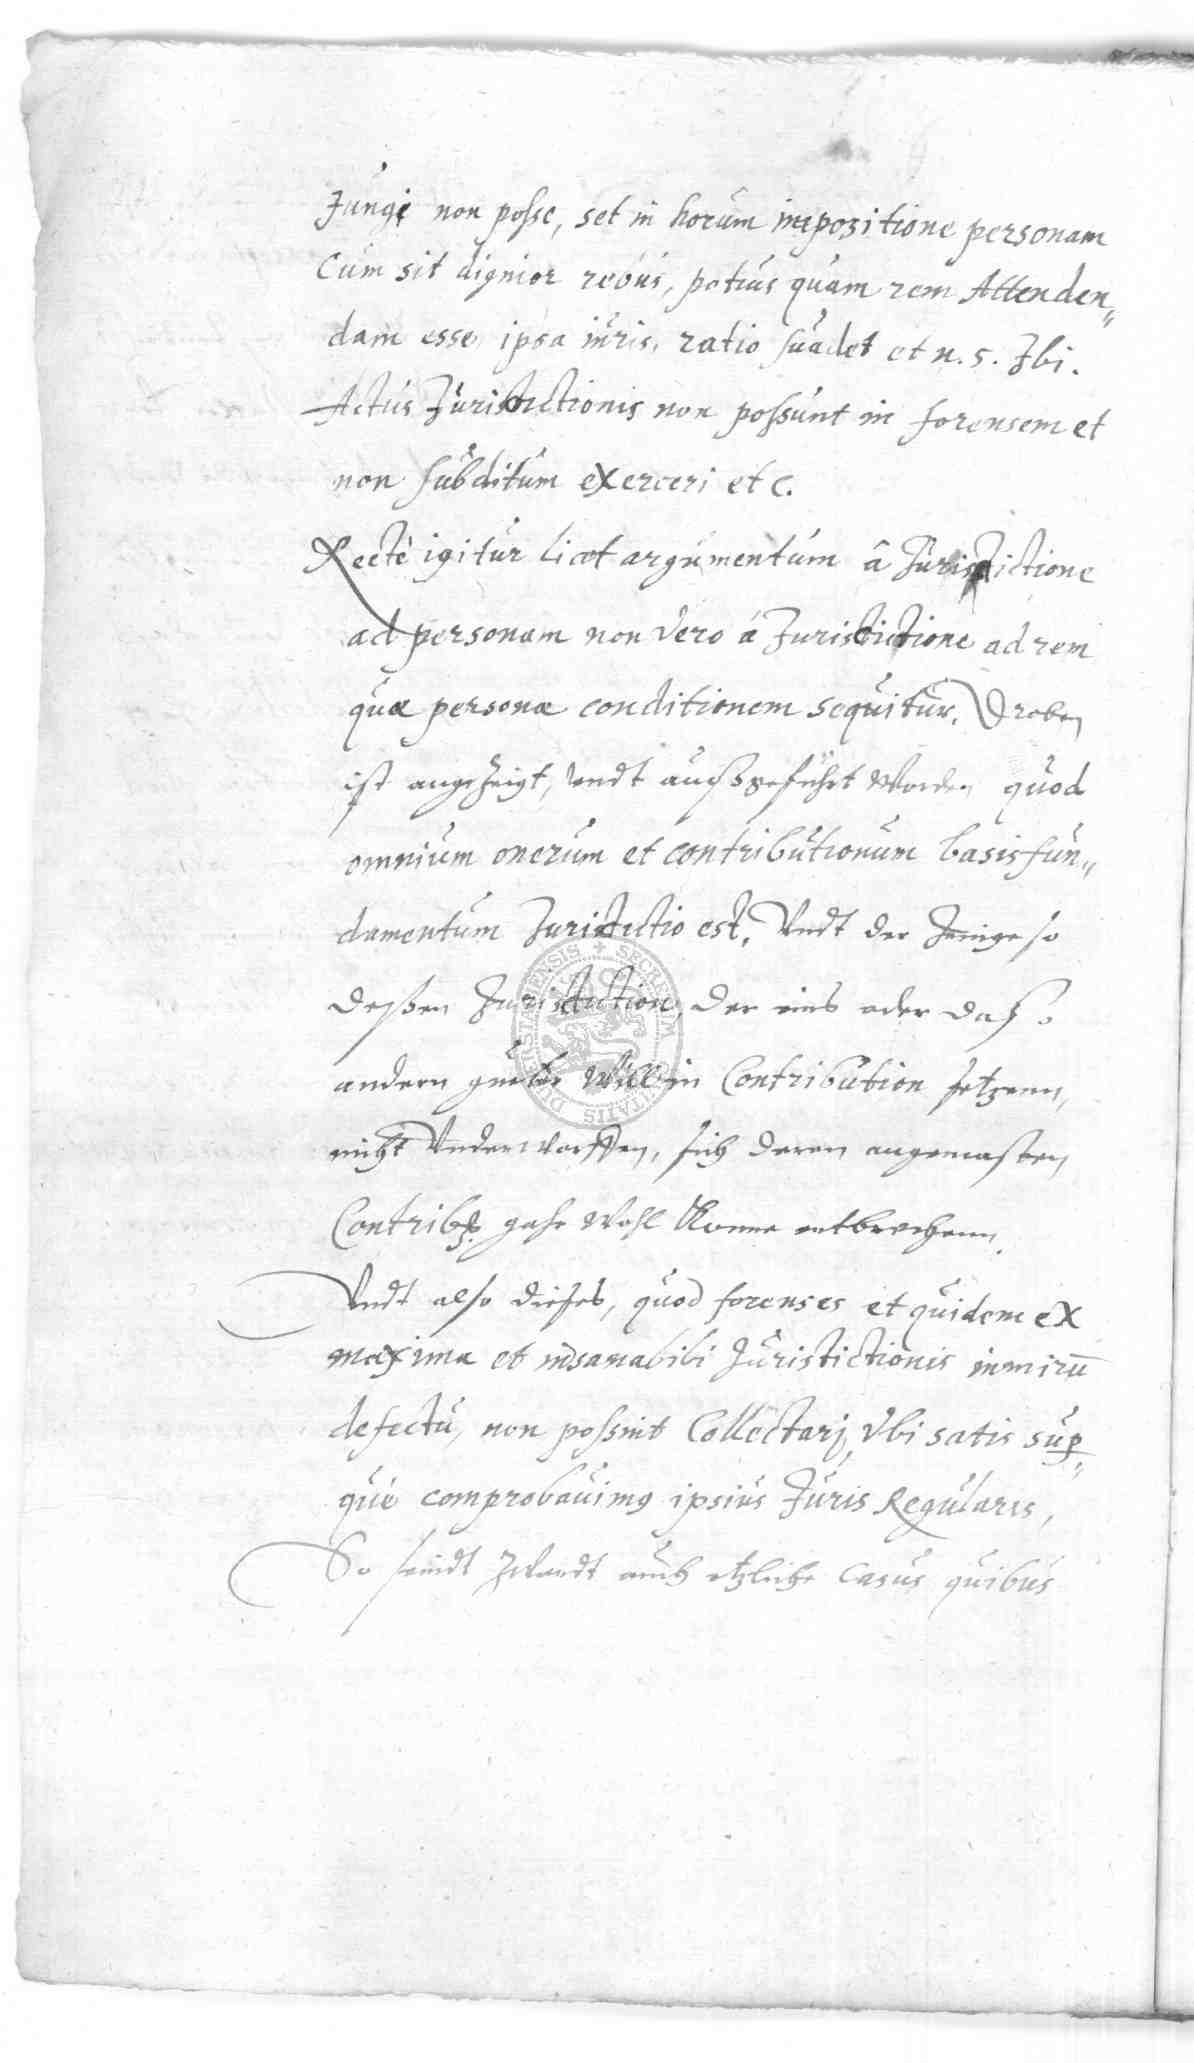 Jungi non posse, set in horum impozitione personam
Cum sit dignior rebus, potius quam rem Attenden„
dam esse ipsa iuris, ratio suadet et n. 5. Jbi.
Actus Jurisdictionis non possunt in forensem et
non subditum exerceri etc.
Rectè igitur licet argumentum â Jurisdictione
ad personam non vero á Jurisdictione ad rem
quæ personæ conditionem sequitur. Droben
ist angezeigt, vndt außgeführt worden quod
omnium onerum et contributionum basis fun„
damentum Jurisdictio est. Vndt der Jenige so
deßen Jurisdiction, der eins oder daß
andern gueter will in Contribution setzenn,
nicht Vnderworffen, sich deren angemasten
Contrib. gahr wohl konne entbrechenn.
Vndt also dieses, quod forenses et quidem ex
maxima et insanabibi Jurisdictionis inmirū
defectu, non possint Collectari, Vbi satis sup„
que comprobauimus ipsius Juris Regularis,
So seindt Zwardt auch etzliche Casus quibus
SECRETUM CIVITATIS DUDERSTADIENSIS